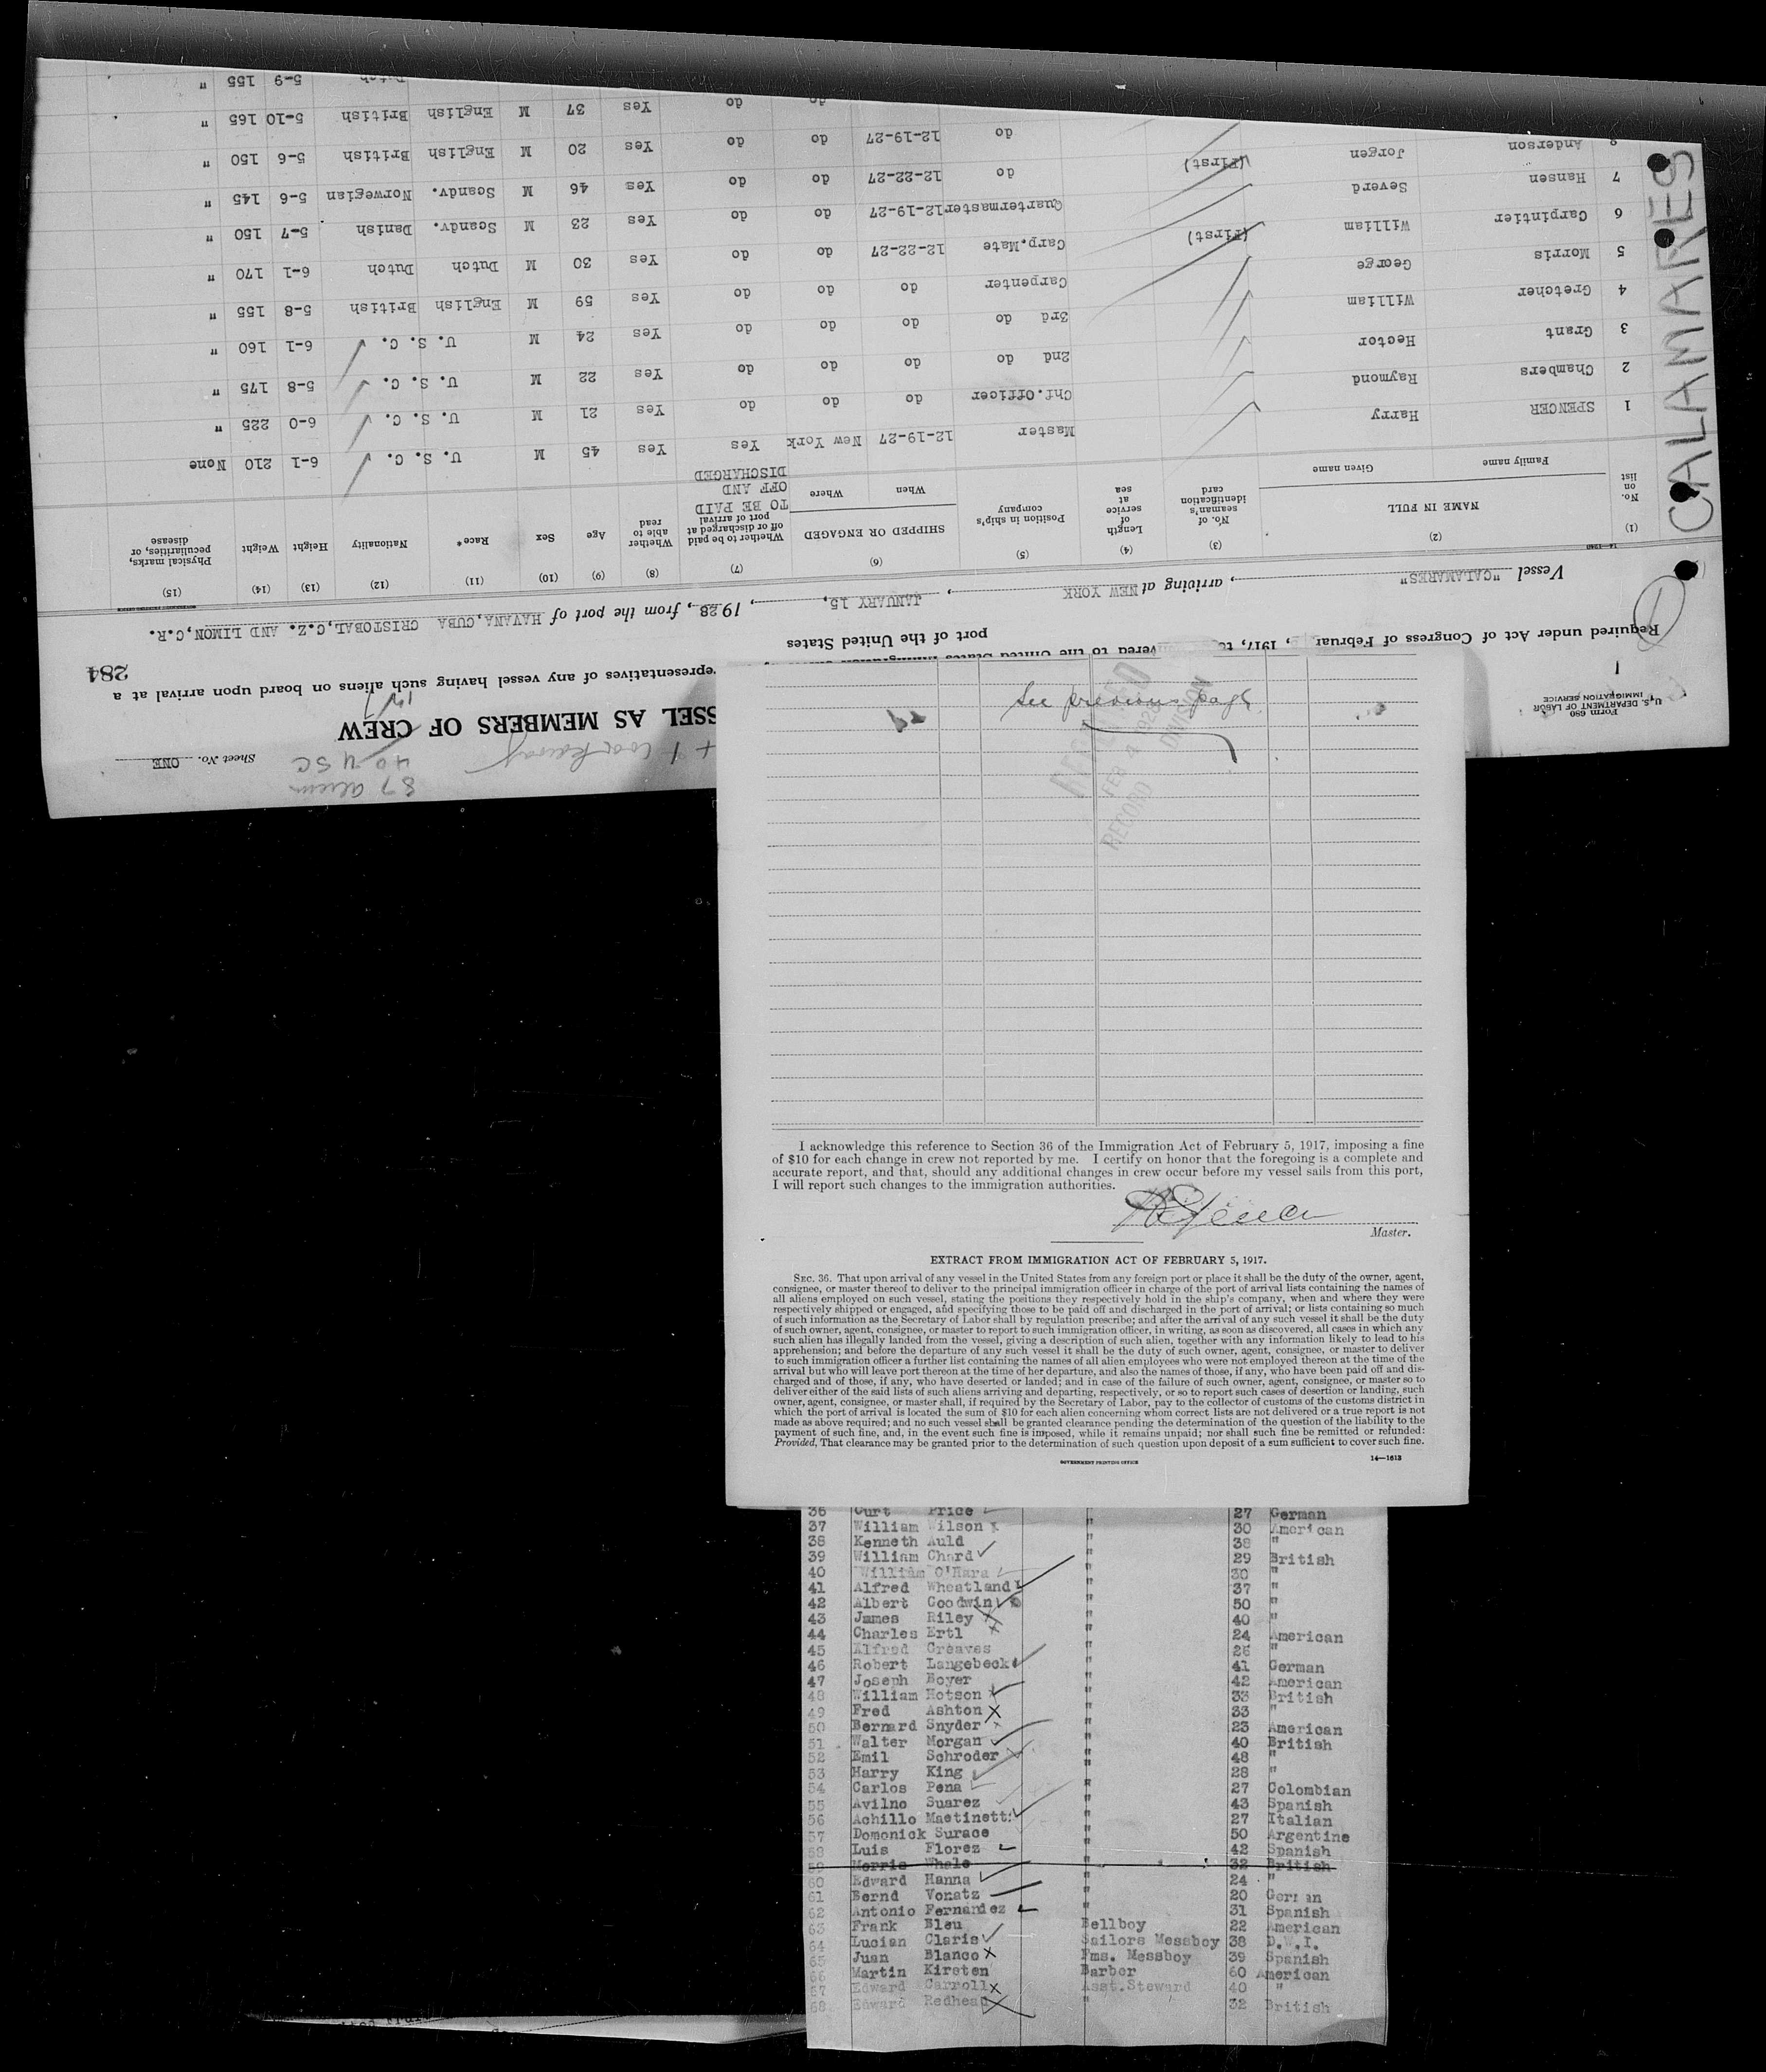 Sheet No. ONE
87 alien
40 USC
+ 1 workaway
SSEL AS MEMBERS OF CREW
Form 680
U. S. DEPARTMENT OF LABOR
IMMIGRATION SERVICE
284
epresentatives of any vessel having such aliens on board upon arrival at a
Required under Act of Congress of Februar , 1917, to vered to the United States
port of the United States
Vessel "CALAMARES", arriving at NEW YORK, JANUARY 15, 1928, from the port of HAVANA,CUBA CRISTOBAL,C.Z. AND LIMON,C.R.
14-1240
(1) (2) (3) (4) (5) (6) (7) (8) (9) (10) (11) (12) (13) (14) (15)
No. on list NAME IN FULL Family name Given name No. of seaman's identification card Length of service at sea Position in ship's company SHIPPED OR ENGAGED When Where Whether to be paid off or discharged at port of arrival TO BE PAID OFF AND DISCHARGED Whether able to read Age Sex Race* Nationality Height Weight Physical marks, peculiarities, or disease
1 SPENCER Harry Master 12-19-27 New York Yes Yes 45 M U. S. C. 6-1 210 None
2 Chambers Raymond Chf.Officer do do do Yes 21 M U. S. C. 6-0 225 "
3 Grant Hector 2nd do do do do Yes 22 M U. S. C. 5-8 175 "
4 Gretcher William 3rd do do do do Yes 24 M U. S. C. 6-1 160 "
5 Morris George Carpenter do do do Yes 59 M English British 5-8 155 "
6 Carpintier William (First) Carp.Mate 12-22-27 do do Yes 30 M Dutch Dutch 6-1 170 "
7 Hansen Severd Quartermaster 12-19-27 do do Yes 23 M Scandv. Danish 5-7 150 "
Anderson Jorgen (First) do 12-22-27 do do Yes 46 M Scandv. Norwegian 5-6 145 "
do 12-19-27 do do Yes 20 M English British 5-6 150 "
do do Yes 37 M English British 5-10 165 "
Dutch 5-9 155 "
CALAMARES
See previous page
FEB 4 1928
RECORD DIVISION
I acknowledge this reference to Section 36 of the Immigration Act of February 5, 1917, imposing a fine
of $10 for each change in crew not reported by me. I certify on honor that the foregoing is a complete and
accurate report, and that, should any additional changes in crew occur before my vessel sails from this port,
I will report such changes to the immigration authorities.
Spencer
Master.
EXTRACT FROM IMMIGRATION ACT OF FEBRUARY 5, 1917.
SEC. 36. That upon arrival of any vessel in the United States from any foreign port or place it shall be the duty of the owner, agent,
consignee, or master thereof to deliver to the principal immigration officer in charge of the port of arrival lists containing the names of
all aliens employed on such vessel, stating the positions they respectively hold in the ship's company, when and where they were
respectively shipped or engaged, and specifying those to be paid off and discharged in the port of arrival; or lists containing so much
of such information as the Secretary of Labor shall by regulation prescribe; and after the arrival of any such vessel it shall be the duty
of such owner, agent, consignee, or master to report to such immigration officer, in writing, as soon as discovered, all cases in which any
such alien has illegally landed from the vessel, giving a description of such alien, together with any information likely to lead to his
apprehension; and before the departure of any such vessel it shall be the duty of such owner, agent, consignee, or master to deliver
to such immigration officer a further list containing the names of all alien employees who were not employed thereon at the time of the
arrival but who will leave port thereon at the time of her departure, and also the names of those, if any, who have been paid off and dis-
charged and of those, if any, who have deserted or landed; and in case of the failure of such owner, agent, consignee, or master so to
deliver either of the said lists of such aliens arriving and departing, respectively, or so to report such cases of desertion or landing, such
owner, agent, consignee, or master shall, if required by the Secretary of Labor, pay to the collector of customs of the customs district in
which the port of arrival is located the sum of $10 for each alien concerning whom correct lists are not delivered or a true report is not
made as above required; and no such vessel shall be granted clearance pending the determination of the question of the liability to the
payment of such fine, and, in the event such fine is imposed, while it remains unpaid; nor shall such fine be remitted or refunded:
Provided, That clearance may be granted prior to the determination of such question upon deposit of a sum sufficient to cover such fine.
GOVERNMENT PRINTING OFFICE 14—1613
36 Curt Price 27 German
37 William Wilson " 30 American
38 Kenneth Auld " 38 "
39 William Chard " 29 British
40 William O'Hara " 30 "
41 Alfred Wheatland " 37 "
42 Albert Goodwin " 50 "
43 James Riley " 40 "
44 Charles Ertl " 24 American
45 Alfred Greaves " 26 "
46 Robert Langebeck " 41 German
47 Joseph Boyer " 42 American
48 William Hotson " 33 British
49 Fred Ashton " 33 "
50 Bernard Snyder " 23 American
51 Walter Morgan " 40 British
52 Emil Schroder " 48 "
53 Harry King " 28 "
54 Carlos Pena " 27 Colombian
55 Avilno Suarez " 43 Spanish
56 Achillo Mastinetti " 27 Italian
57 Domonick Surace " 50 Argentine
58 Luis Florez " 42 Spanish
59 Morris Whale " 32 British
60 Edward Hanna " 24 "
61 Bernd Vonatz " 20 German
62 Antonio Fernandez " 31 Spanish
63 Frank Bleu Bellboy 22 American
64 Lucian Claris Sailors Messboy 38 D.W.I.
65 Juan Blanco Fms. Messboy 39 Spanish
66 Martin Kirsten Barber 60 American
67 Edward Carroll Asst.Steward 40 "
68 Edward Redhead " 32 British